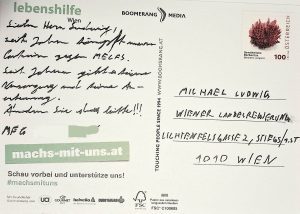 lebenshilfe
Wien
BOOMERANG MEDIA
ÖSTERREICH
100
Lieber Herr Ludwig!
seit Jahren kämpft meine
gegen ME/CFS.
Seit Jahren gibt es keine
Versorgung und keine An-
erkennung.
Ändern Sie das bitte!!!
MFG
machs-mit-uns.at
Schau vorbei und unterstütze uns!
#machsmituns
TOUCHING PEOPLE SINCE 1994
WWW.BOOMERANG.AT
MICHAEL LUDWIG
WIENER LANDESREGIERUNG
LICHTENFELSGASSE 2,
1010 WIEN
UCI
GOURMET
FSC